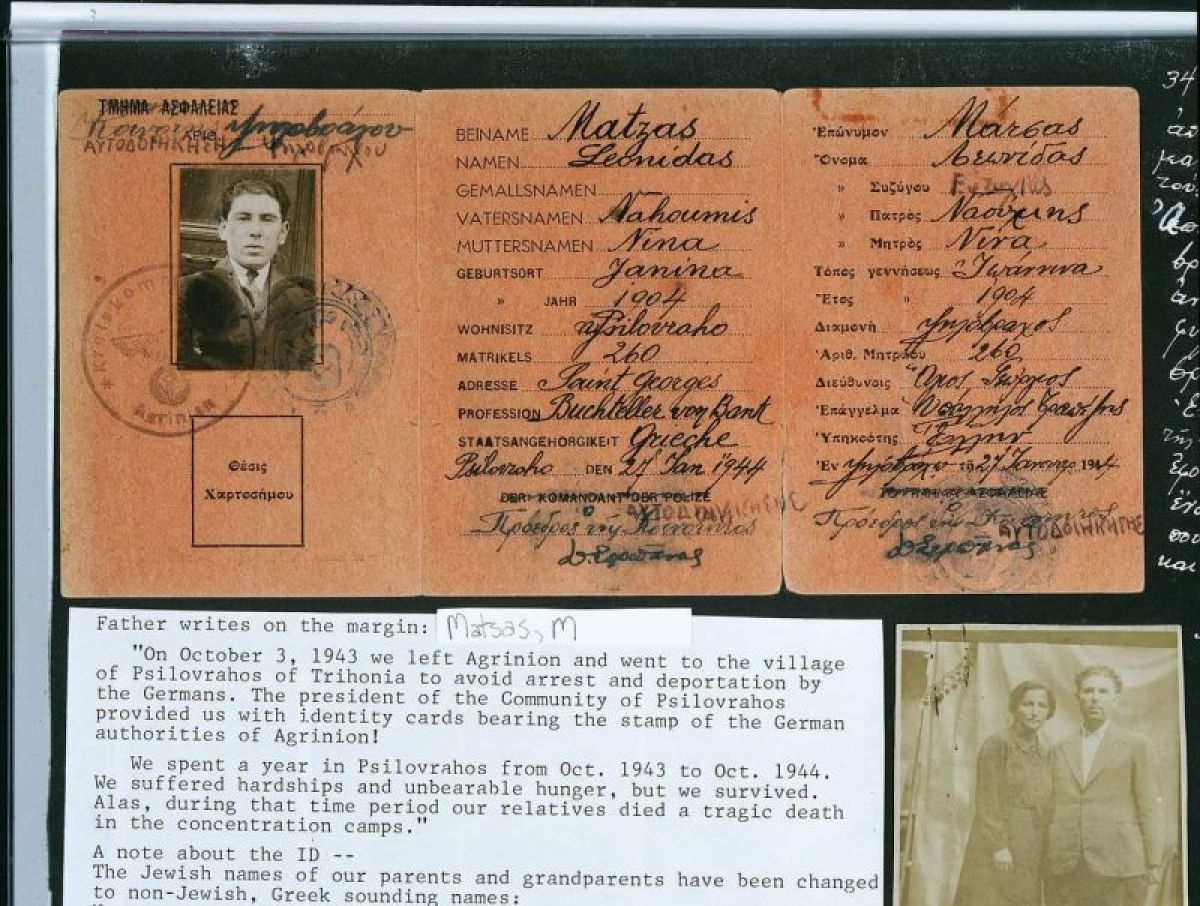 ΤΜΗΜΑ ΑΣΦΑΛΕΙΑΣ
ΑΡΙΘ.
ΑΥΤΟΔΙΟΙΚΗΣΗ
Kreiskom
Agrinion
Θέσις
Χαρτοσήμου
BEINAME Matzas
NAMEN Leonidas
GEMALLSNAMEN
VATERSNAMEN Nahoumis
MUTTERSNAMEN Nina
GEBURTSORT Janina
» JAHR 1904
WOHNISITZ Psilovraho
MATRIKELS 260
ADRESSE Saint Georges
PROFESSION Buchteller von Bank
STAATSANGEHORIGKEIT Grieche
Psilovraho DEN 27 Jan 1944
DER KOMANDANT DER POLIZE
Πρόεδρος της Κοινότητος
Ἐπώνυμον Μάτσας
Ὄνομα Λεωνίδας
» Συζύγου
» Πατρὸς Ναούμης
» Μητρὸς Νίνα
Τόπος γεννήσεως Ἰωάννινα
Ἔτος » 1904
Διαμονὴ Ψηλόβραχος
Ἀριθ. Μητρώου 260
Διεύθυνσις Ἅγιος Γεώργιος
Ἐπάγγελμα Ὑπάλληλος Τραπέζης
Ὑπηκοότης Ἕλλην
Ἐν τῇ 27 Ἰανουαρ 1944
Πρόεδρος της Κοινότητος
ΑΥΤΟΔΙΟΙΚΗΣΗΣ
34
και
Father writes on the margin: Matsas, M
"On October 3, 1943 we left Agrinion and went to the village
of Psilovrahos of Trihonia to avoid arrest and deportation by
the Germans. The president of the Community of Psilovrahos
provided us with identity cards bearing the stamp of the German
authorities of Agrinion!
We spent a year in Psilovrahos from Oct. 1943 to Oct. 1944.
We suffered hardships and unbearable hunger, but we survived.
Alas, during that time period our relatives died a tragic death
in the concentration camps."
A note about the ID --
The Jewish names of our parents and grandparents have been changed
to non-Jewish, Greek sounding names: